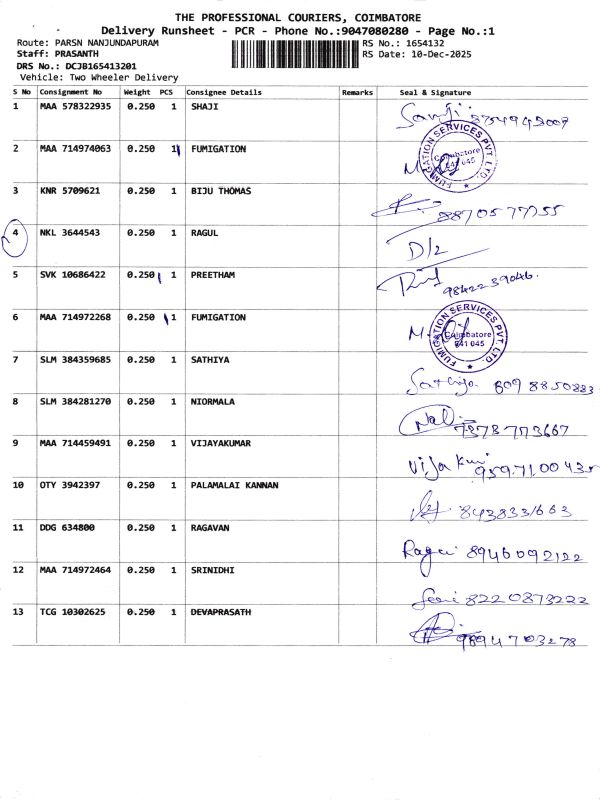 THE PROFESSIONAL COURIERS, COIMBATORE
Delivery Runsheet - PCR - Phone No.:9047080280 - Page No.:1
Route: PARSN NANJUNDAPURAM RS No.: 1654132
Staff: PRASANTH RS Date: 10-Dec-2025
DRS No.: DCJB165413201
Vehicle: Two Wheeler Delivery
S No Consignment No Weight PCS Consignee Details Remarks Seal & Signature
1 MAA 578322935 0.250 1 SHAJI
2 MAA 714974063 0.250 1 FUMIGATION
FUMIGATION SERVICES PVT. LTD. Coimbatore 641 045
3 KNR 5709621 0.250 1 BIJU THOMAS 8870577755
4 NKL 3644543 0.250 1 RAGUL D/2
5 SVK 10686422 0.250 1 PREETHAM 9842239046.
6 MAA 714972268 0.250 1 FUMIGATION
FUMIGATION SERVICES PVT. LTD. Coimbatore 641 045
7 SLM 384359685 0.250 1 SATHIYA Sathiya 609 8850883
8 SLM 384281270 0.250 1 NIORMALA 7878773667
9 MAA 714459491 0.250 1 VIJAYAKUMAR
10 OTY 3942397 0.250 1 PALAMALAI KANNAN 8438331663
11 DDG 634800 0.250 1 RAGAVAN 8946092122
12 MAA 714972464 0.250 1 SRINIDHI 8220873222
13 TCG 10302625 0.250 1 DEVAPRASATH 9894703278